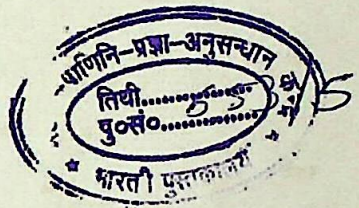 पाणिनि-प्रज्ञा-अनुसन्धान
तिथी..............
पु०सं०..............
भारती पुस्तकालय